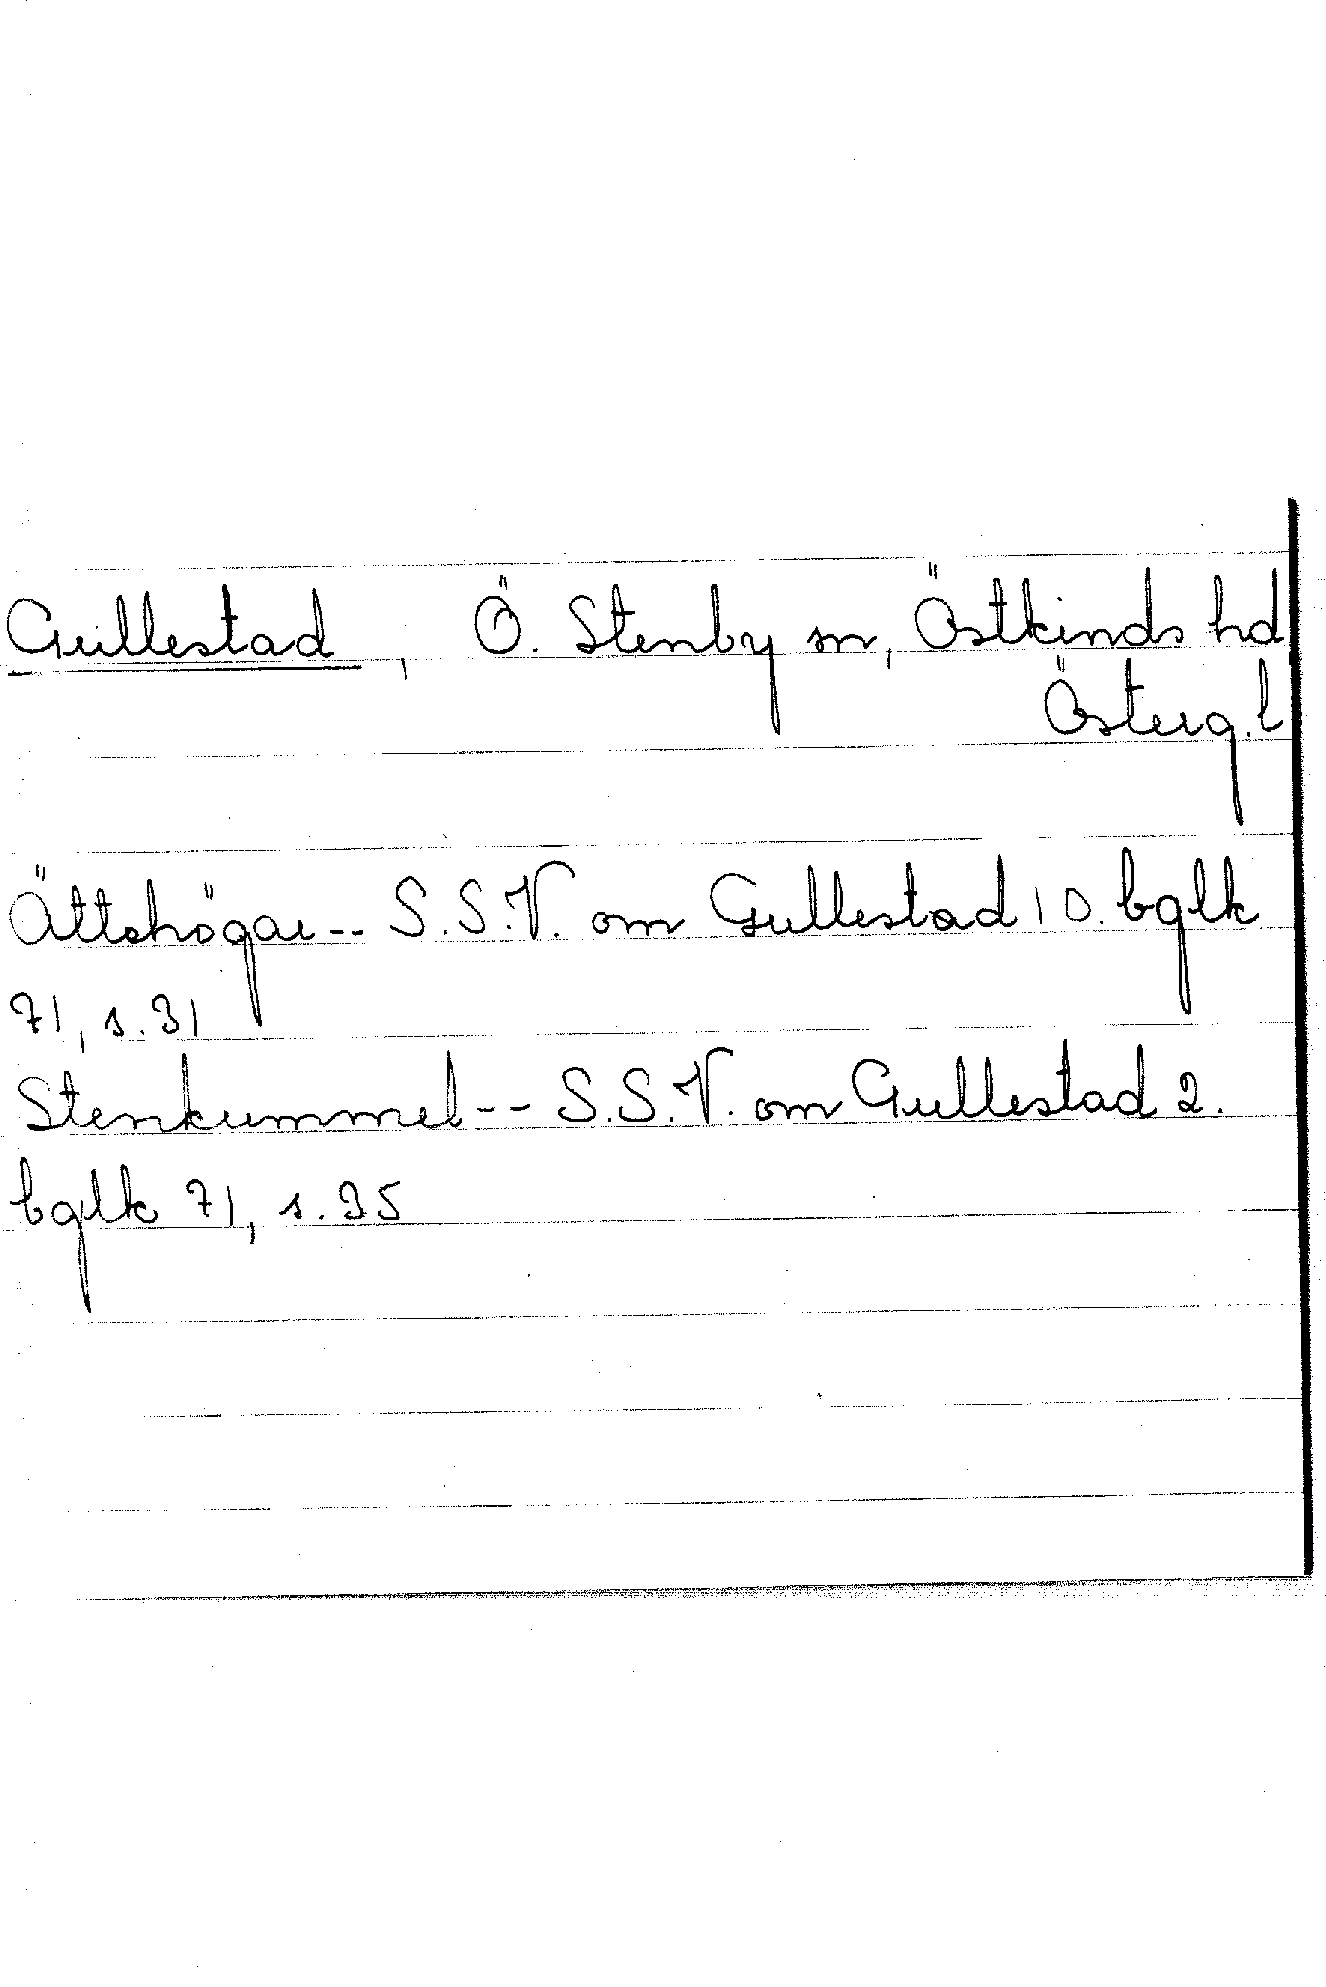 Gullestad, Ö. Stenby sn, Östkinds hd
Österg. l
Ättehögar -- S.S.V. om Gullestad 10. bglk
71, s. 31
Stenkummel -- S.S.V. om Gullestad 2.
bglk 71, s. 35